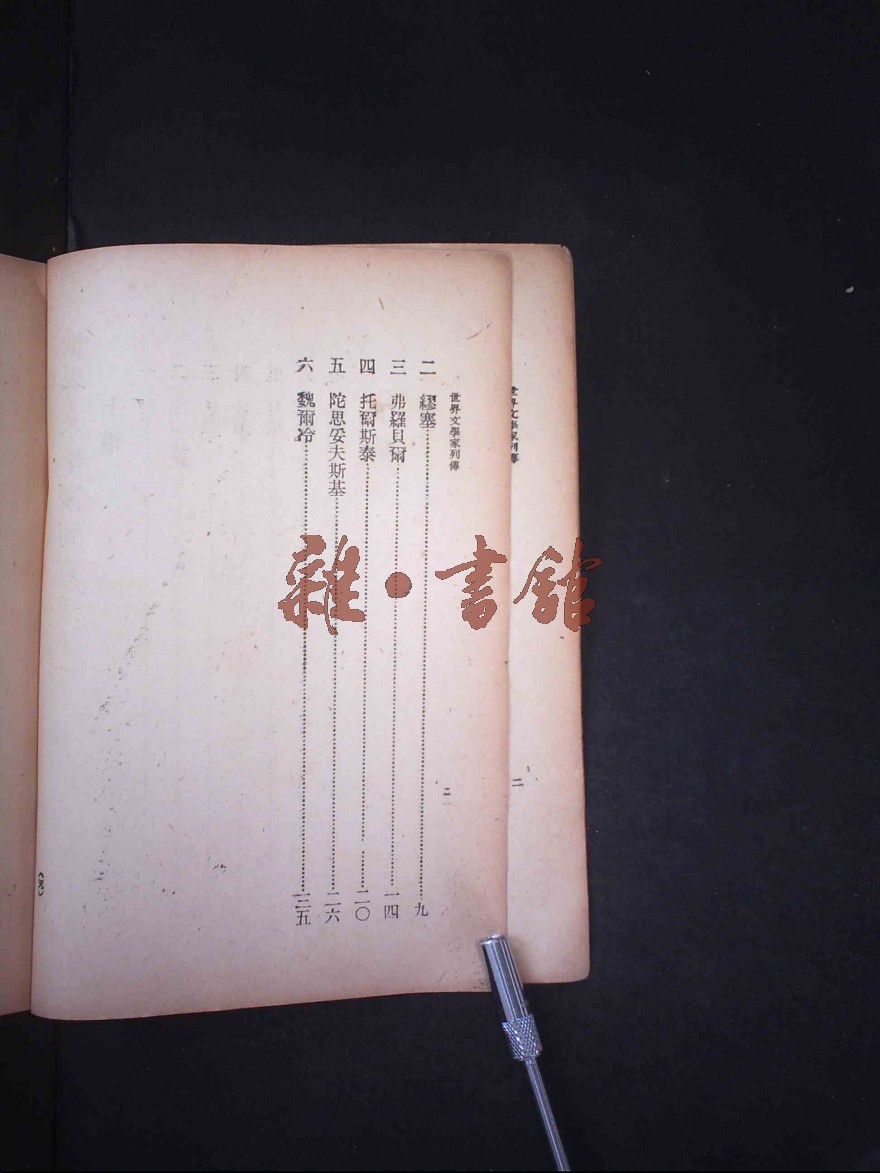 世界文學家列傳
二
二 繆塞 九
三 弗羅貝爾 一四
四 托爾斯泰 二〇
五 陀思妥夫斯基 二六
六 魏爾冷 三五
世界文學家列傳
二
雜·書館